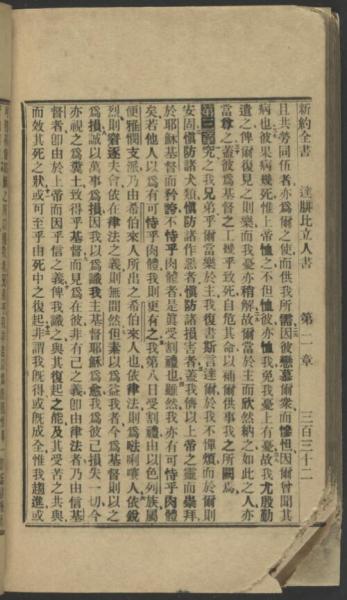 新約全書　達腓比立人書　第二章　三百三十二
且共勞同伍者亦爲爾之使而供我所需因彼戀慕爾衆而慘怛因爾曾聞其
病也彼果病幾死惟上帝恤之不但恤彼亦恤我免我憂上有憂故我尤殷勤
遣之俾爾復見之則樂而我憂亦稍解故爾當於主而欣然納之如此之人亦
當尊之蓋彼爲基督之工幾乎致死自危其命以補爾供事我之所闕焉
第三章究之我兄弟乎爾當樂於主我復書斯言達爾於我不憚煩而於爾則
安固愼防諸犬類愼防諸作惡者愼防諸損害者蓋我儕以上帝之靈而崇拜
於耶穌基督而矜誇不恃乎肉體者是眞受割禮也雖然我亦有可恃乎肉體
矣若他人以爲有可恃乎肉體我則更有之我第八日受割禮由以色列族屬
便雅憫支派乃由希伯來人所出之希伯來人也依律法則爲𠵽唎㘔人依銳
烈則窘逐夫會依在律法之義則無間然但素以爲益我者今爲基督則以之
爲損誠以萬事爲損因我以爲識我主基督耶穌爲愈我爲彼已損失一切今
亦視之爲糞土致得乎基督而見爲在彼非有己之義卽由律法者乃由信基
督者卽由於上帝而因乎信之義俾我識之與其復起之能及其受苦之共與
而效其死之狀或可至乎由死中之復起非謂我旣得或旣成全惟我趨進或